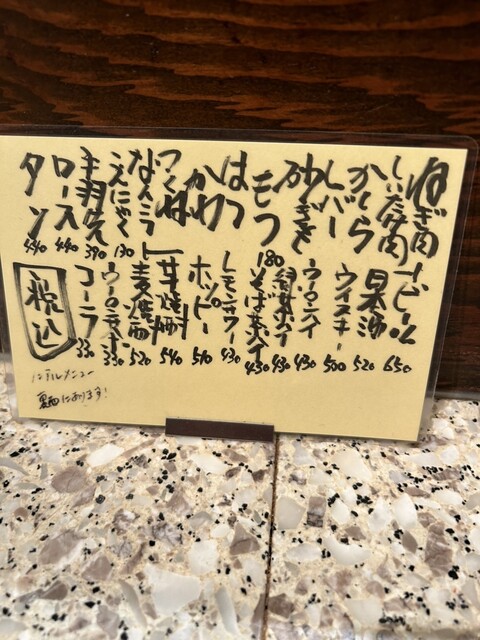 ねぎ肉
しいたけ肉
かしら
レバー
砂ぎも
もつ
はつ
かわ
つくね
なんこつ
180
こんにゃく 130
手羽先 390
ロース 440
タン 440
ビール 650
日本酒 520
ウイスキー 500
ウーロンハイ 430
緑茶ハイ 430
そば茶ハイ 430
レモンサワー 430
ホッピー 540
芋焼酎 540
麦焼酎 520
ウーロン茶 330
コーラ 330
税込
ボトルメニュー
裏面にあります!